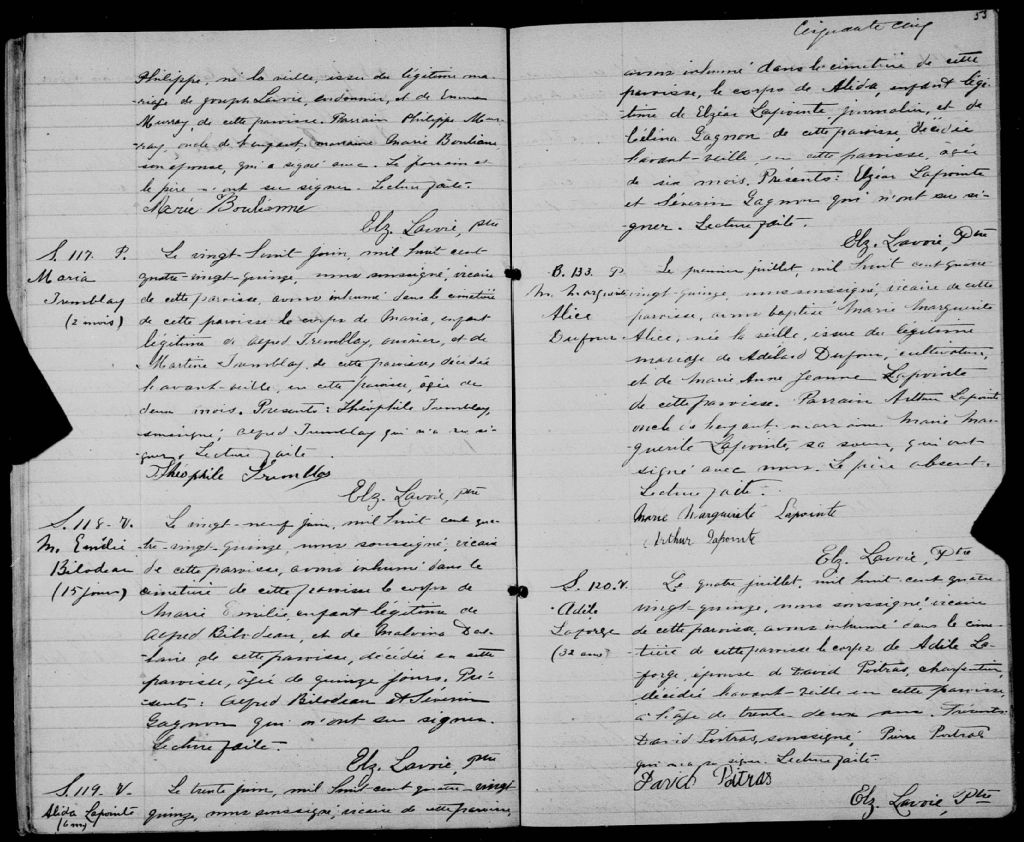 Philippe, né la veille, issu du légitime ma-
riage de Joseph Lavoie, cordonnier, et de Emma
Murray, de cette paroisse. Parrain Philippe Mur-
ray, oncle de l'enfant, marraine Marie Boulianne
son épouse, qui a signé avec. Le parrain et
le père n'ont su signer. Lecture faite.
Marie Boulianne
Elz. Lavoie, ptre
S. 117. P.
Maria
Tremblay
(2 mois)
Le vingt-huit juin, mil huit cent
quatre-vingt-quinze, nous soussigné, vicaire
de cette paroisse, avons inhumé dans le cimetière
de cette paroisse le corps de Maria, enfant
légitime de Alfred Tremblay, ouvrier, et de
Martine Tremblay, de cette paroisse, décédée
l'avant-veille, en cette paroisse, agée de
deux mois. Présents: Théophile Tremblay,
soussigné, Alfred Tremblay qui n'a su si-
gner. Lecture faite.
Théophile Tremblay
Elz. Lavoie, ptre
S. 118. V.
M. Emilie
Bilodeau
(15 jours)
Le vingt-neuf juin, mil huit cent qua-
tre-vingt-quinze, nous soussigné, vicaire
de cette paroisse, avons inhumé dans le
cimetière de cette paroisse le corps de
Marie Emilie, enfant légitime de
Alfred Bilodeau, et de Malvina
de cette paroisse, décédée en cette
paroisse, agée de quinze jours. Pré-
sents: Alfred Bilodeau et Sévérin
Gagnon qui n'ont su signer.
Lecture faite.
Elz. Lavoie, ptre
S. 119. V.
Alida Lapointe
(6 m)
Le trente juin, mil huit-cent-quatre-vingt
quinze, nous soussigné, vicaire de cette paroisse,
55
Cinquante cinq
avons inhumé dans le cimetière de cette
paroisse, le corps de Alida, enfant légi-
time de Elzéar Lapointe, journalier, et de
Célina Gagnon de cette paroisse, décédée
l'avant-veille en cette paroisse, agée
de six mois. Présents: Elzéar Lapointe
et Sévérin Gagnon qui n'ont su si-
gner. Lecture faite.
Elz. Lavoie, Ptre
B. 133. P.
M. Marguerite
Alice
Dufour
Le premier juillet, mil huit cent quatre
vingt-quinze, nous soussigné, vicaire de cette
paroisse, avons baptisé Marie Marguerite
Alice, née la veille, issue du légitime
mariage de Adélard Dufour, cultivateur,
et de Marie Anne Jeanne Lapointe
de cette paroisse. Parrain Arthur Lapointe
oncle de l'enfant, marraine Marie Mar-
guerite Lapointe, sa soeur, qui ont
signé avec nous. Le père absent.
Lecture faite.
Marie Marguerite Lapointe
Arthur Lapointe
Elz. Lavoie, Ptre
S. 120. V.
Adèle
Laforge
(32 ans)
Le quatre juillet, mil huit-cent-quatre-
vingt-quinze, nous soussigné vicaire
de cette paroisse, avons inhumé dans le cime-
tière de cette paroisse le corps de Adèle La-
forge, épouse de David Poitras, charpentier,
décédée l'avant-veille en cette paroisse,
à l'âge de trente-deux ans. Présents:
David Poitras, soussigné, Pierre Poitras
qui n'a su signer. Lecture faite.
David Poitras
Elz. Lavoie, Ptre